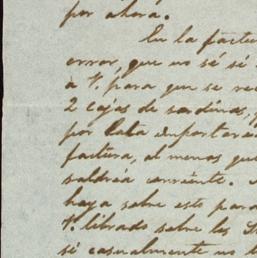 por ahora.
En la factu
error, que no sé si
a V. para que se re
2 cajas de sardinas,
por lata importará
factura, al menos que
saldría corriente.
haya sobre esto para
V. librado sobre los S
sé casualmente no t